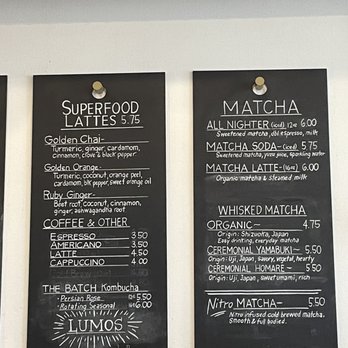 SUPERFOOD
LATTES 5.75
Golden Chai-
Turmeric, ginger, cardamom,
cinnamon, clove & black pepper
Golden Orange-
Turmeric, coconut, orange peel,
cardamom, blk pepper, sweet orange oil
Ruby Ginger-
Beet root, coconut, cinnamon,
ginger, ashwagandha root
COFFEE & OTHER
ESPRESSO 3.50
AMERICANO 3.50
LATTE 4.50
CAPPUCCINO 4.00
THE BATCH Kombucha
- Persian Rose 5.50
- Rotating Seasonal 6.00
LUMOS
MATCHA
ALL NIGHTER (iced) 12oz 6.00
Sweetened matcha, dbl espresso, milk
MATCHA SODA- (iced) 5.75
Sweetened matcha, yuzu juice, sparkling water
MATCHA LATTE- (16oz) 6.00
Organic matcha & steamed milk
WHISKED MATCHA
ORGANIC- 4.75
Origin: Shizuoka, Japan
Easy drinking, everyday matcha
CEREMONIAL YAMABUKI- 5.50
Origin: Uji, Japan, savory, vegetal, hearty
CEREMONIAL HOMARE- 5.50
Origin: Uji, Japan, sweet umami, rich
Nitro MATCHA- 5.50
Nitro infused cold brewed matcha.
Smooth & full bodied.